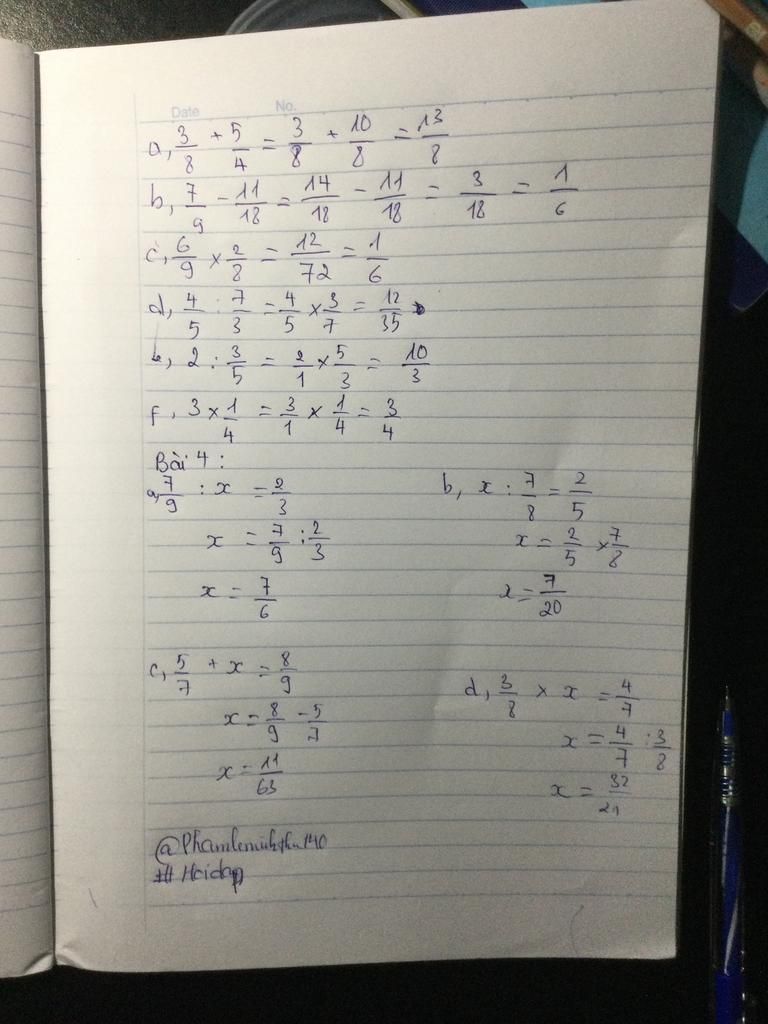 Date No.
a, 3/8 + 5/4 = 3/8 + 10/8 = 13/8
b, 7/9 - 11/18 = 14/18 - 11/18 = 3/18 = 1/6
c, 6/9 × 2/8 = 12/72 = 1/6
d, 4/5 : 7/3 = 4/5 × 3/7 = 12/35
e, 2 : 3/5 = 2/1 × 5/3 = 10/3
f, 3 × 1/4 = 3/1 × 1/4 = 3/4
Bài 4 :
a, 7/9 : x = 2/3
x = 7/9 : 2/3
x = 7/6
b, x : 7/8 = 2/5
x = 2/5 × 7/8
x = 7/20
c, 5/7 + x = 8/9
x = 8/9 - 5/7
x = 11/63
d, 3/8 × x = 4/7
x = 4/7 : 3/8
x = 32/21
# Hoidap